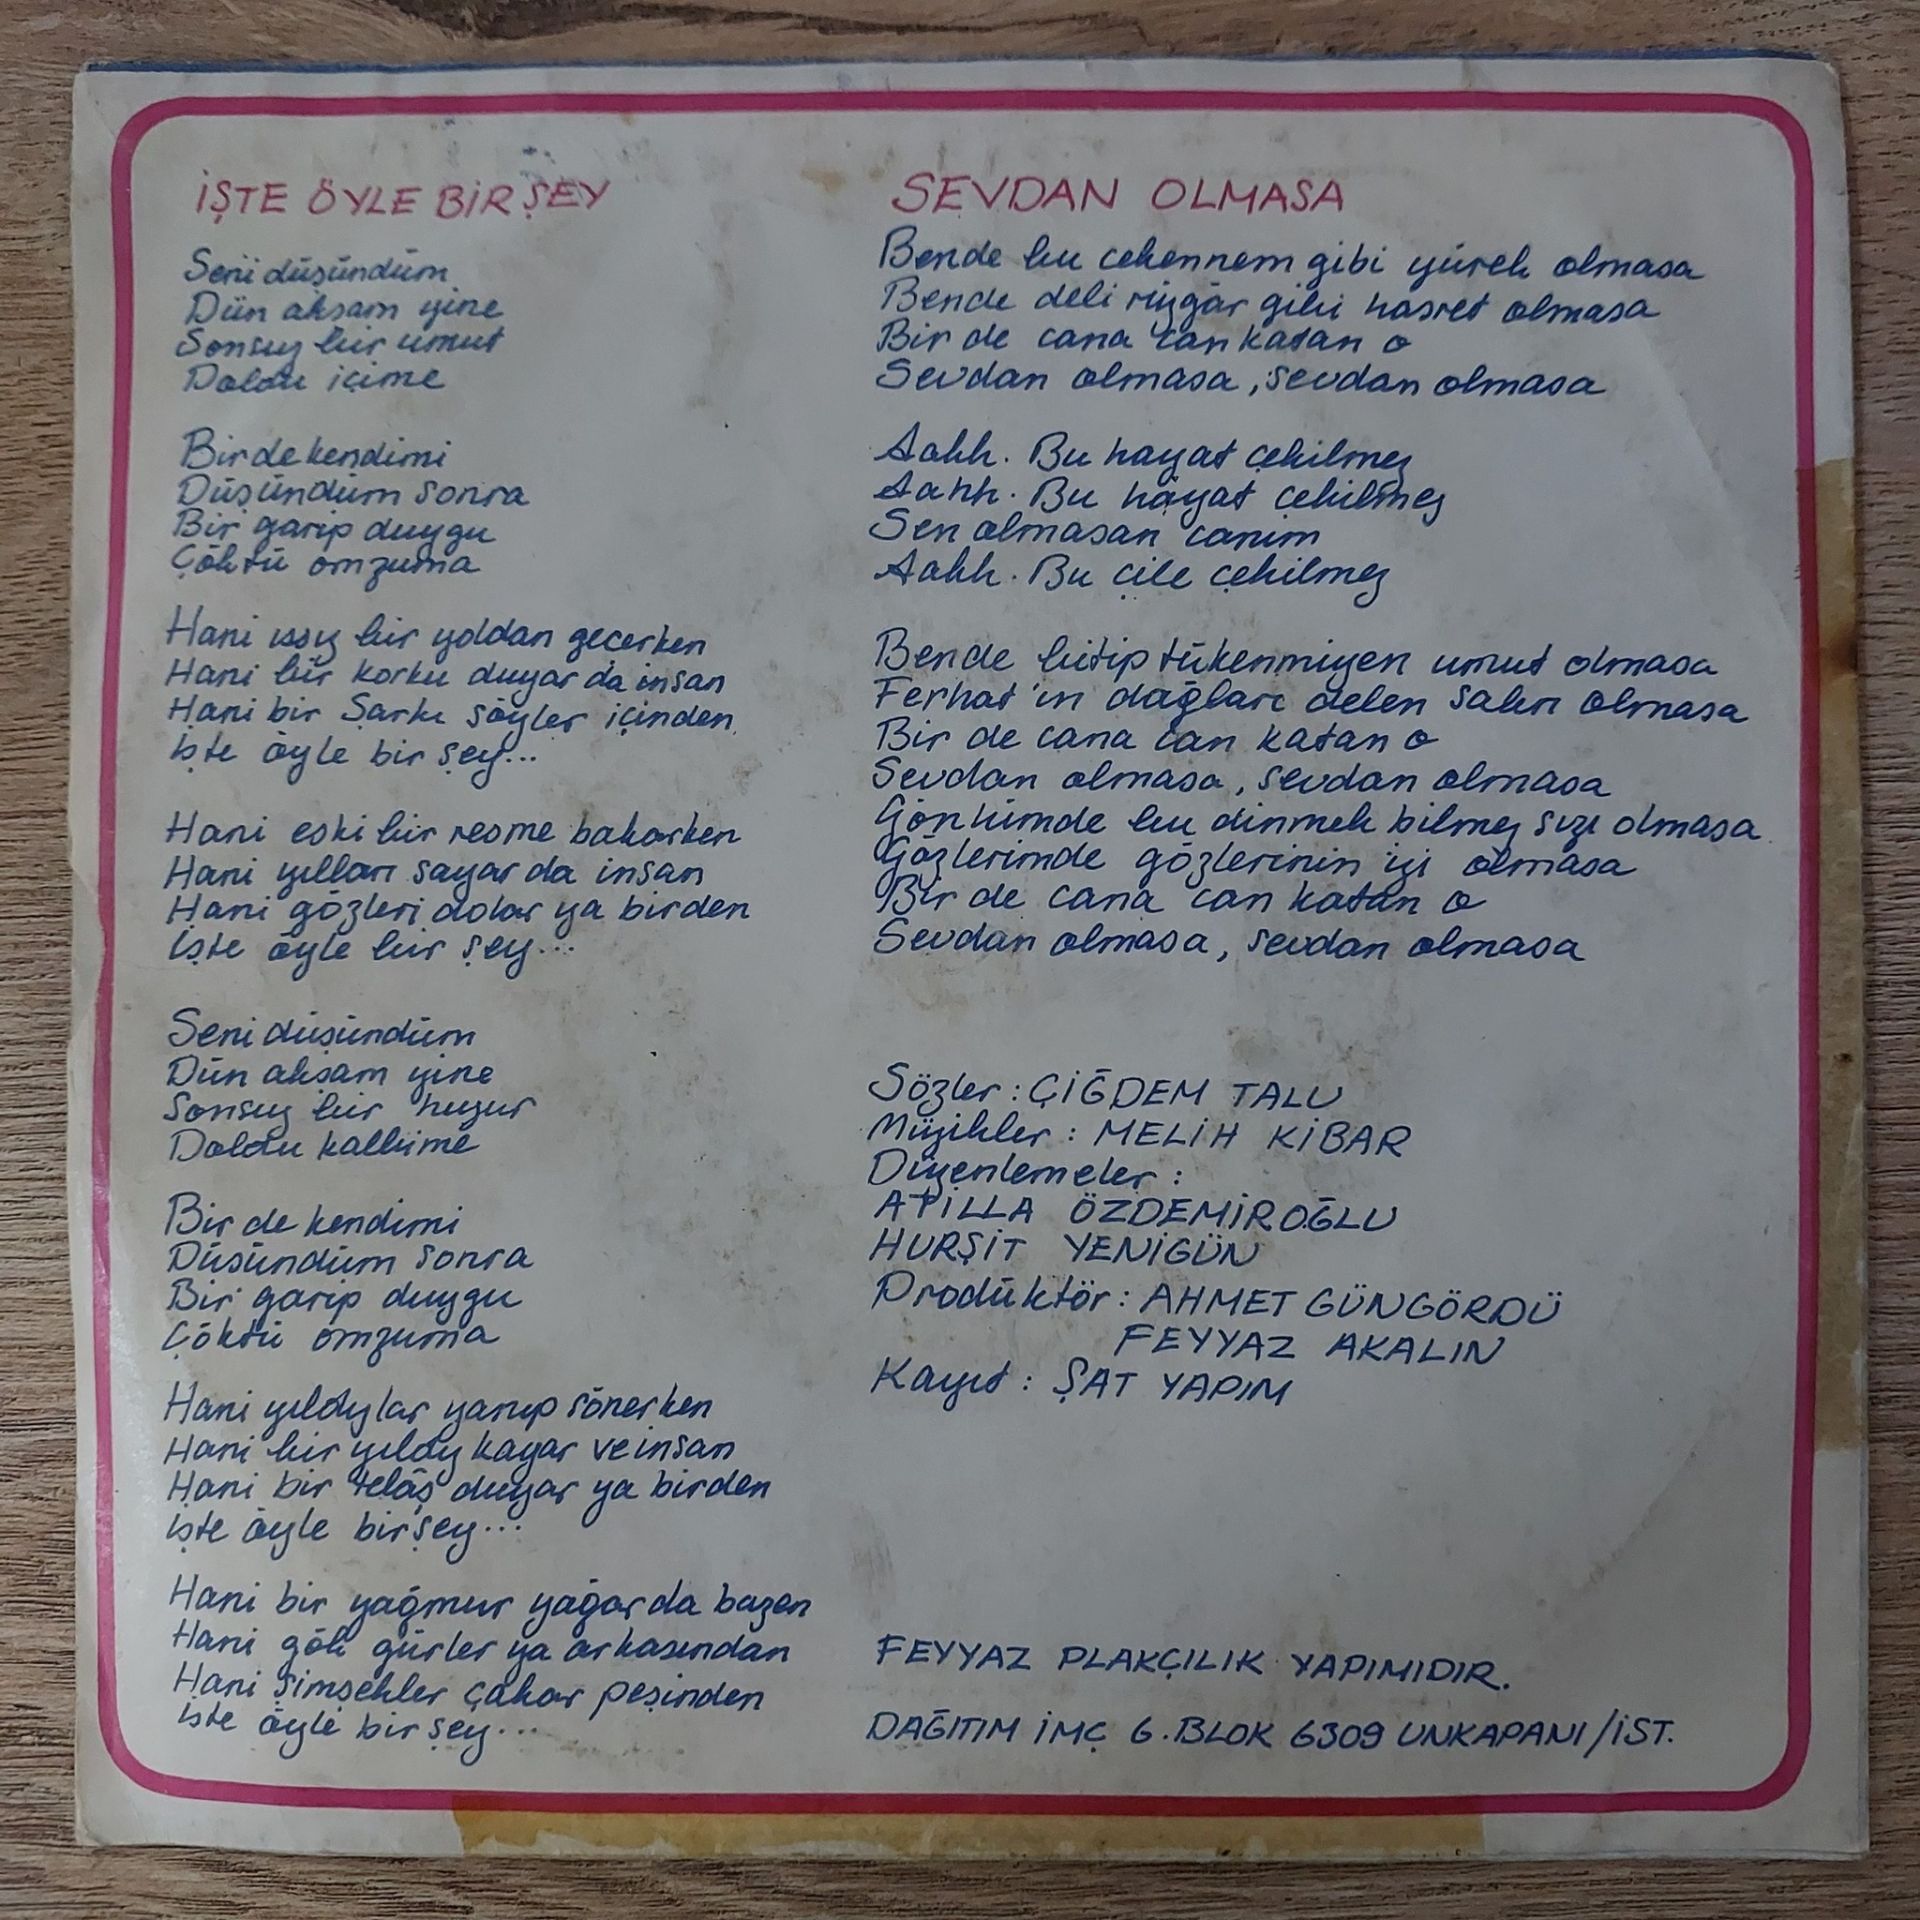 İŞTE ÖYLE BİR ŞEY
Seni düşündüm
Dün akşam yine
Sonsuz bir umut
Doldu içime
Bir de kendimi
Düşündüm sonra
Bir garip duygu
Çöktü omzuma
Hani ıssız bir yoldan geçerken
Hani bir korku duyar da insan
Hani bir Şarkı söyler içinden
İşte öyle bir şey...
Hani eski bir resme bakarken
Hani yılları sayar da insan
Hani gözleri dolar ya birden
İşte öyle bir şey...
Seni düşündüm
Dün akşam yine
Sonsuz bir huzur
Doldu kalbime
Bir de kendimi
Düşündüm sonra
Bir garip duygu
Çöktü omzuma
Hani yıldızlar yanıp sönerken
Hani bir yıldız kayar ve insan
Hani bir telâş duyar ya birden
İşte öyle bir şey...
Hani bir yağmur yağar da bazen
Hani gök gürler ya arkasından
Hani şimşekler çakar peşinden
İşte öyle bir şey...
SEVDAN OLMASA
Bende bu cehennem gibi yürek olmasa
Bende deli rüzgâr gibi hasret olmasa
Bir de cana can katan o
Sevdan olmasa, sevdan olmasa
Aahh. Bu hayat çekilmez
Aahh. Bu hayat çekilmez
Sen olmasan canım
Aahh. Bu çile çekilmez
Bende bitip tükenmiyen umut olmasa
Ferhat'ın dağları delen sabrı olmasa
Bir de cana can katan o
Sevdan olmasa, sevdan olmasa
Gönlümde bu dinmek bilmez sızı olmasa
Gözlerimde gözlerinin izi olmasa
Bir de cana can katan o
Sevdan olmasa, sevdan olmasa
Sözler: ÇİĞDEM TALU
Müzikler: MELİH KİBAR
Düzenlemeler:
ATİLLA ÖZDEMİROĞLU
HURŞİT YENİGÜN
Prodüktör: AHMET GÜNGÖRDÜ
FEYYAZ AKALIN
Kayıt: ŞAT YAPIM
FEYYAZ PLAKÇILIK YAPIMIDIR.
DAĞITIM İMÇ 6. BLOK 6309 UNKAPANI/İST.